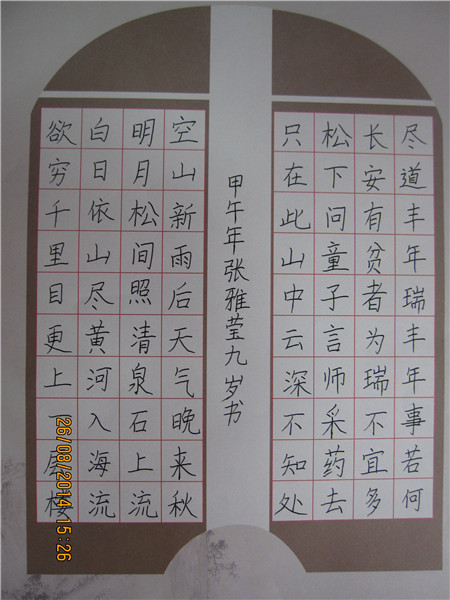 尽道丰年瑞丰年事若何
长安有贫者为瑞不宜多
松下问童子言师采药去
只在此山中云深不知处
甲午年张雅莹九岁书
空山新雨后天气晚来秋
明月松间照清泉石上流
白日依山尽黄河入海流
欲穷千里目更上一层楼
26/08/2014 15:26